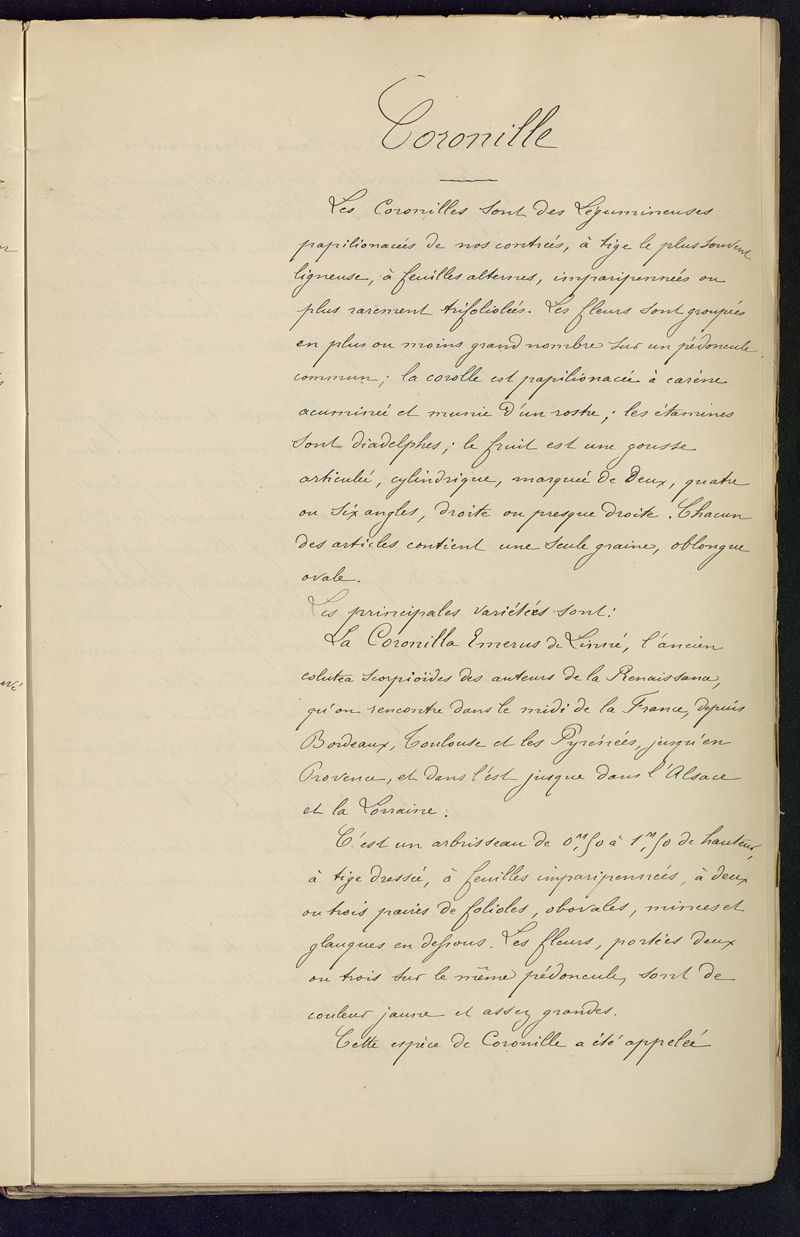 Coronille
Les Coronilles sont des Légumineuses
papilionacées de nos contrées, à tige le plus souvent
ligneuse, à feuilles alternes, imparipennées ou
plus rarement trifoliolées. Les fleurs sont groupées
en plus ou moins grand nombre sur un pédoncule
commun; la corolle est papilionacée à carène
acuminée et munie d'un rostre; les étamines
sont diadelphes; le fruit est une gousse
articulée, cylindrique, marquée de deux, quatre
ou six angles, droite ou presque droite. Chacun
des articles contient une seule graine, oblongue
ovale.
Les principales variétés sont:
La Coronilla Emerus de Linné, l'ancien
colutea scorpioïdes des auteurs de la Renaissance,
qu'on rencontre dans le midi de la France, depuis
Bordeaux, Toulouse et les Pyrénées, jusqu'en
Provence, et dans l'est jusque dans l'Alsace
et la Lorraine.
C'est un arbrisseau de 0m,50 à 1m,50 de hauteur,
à tige dressée, à feuilles imparipennées, à deux
ou trois paires de folioles, obovales, minces et
glauques en dessous. Les fleurs, portées deux
ou trois sur le même pédoncule, sont de
couleur jaune et assez grandes.
Cette espèce de Coronille a été appelée